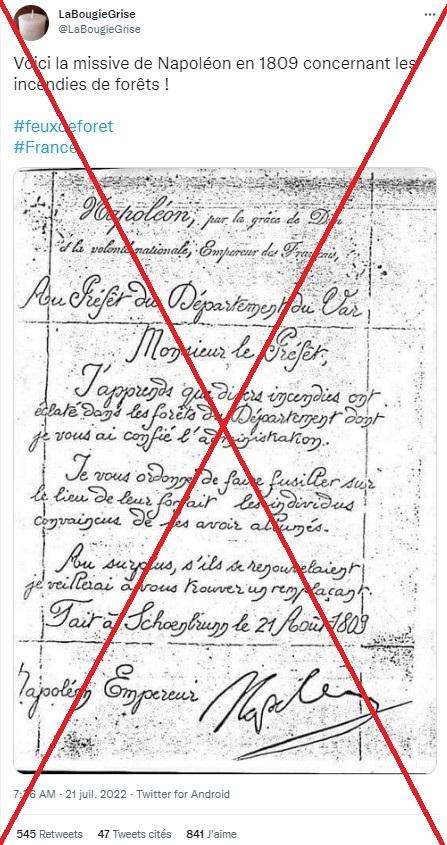 LaBougieGrise
@LaBougieGrise
Voici la missive de Napoléon en 1809 concernant les
incendies de forêts !
#feuxdeforet
#France
Napoléon, par la grâce de Dieu
et la volonté nationale, Empereur des Français,
Au Préfet du Département du Var
Monsieur le Préfet,
J'apprends que divers incendies ont
éclaté dans les forêts du Département dont
je vous ai confié l'administration.
Je vous ordonne de faire fusiller sur
le lieu de leur forfait les individus
convaincus de les avoir allumés.
Au surplus, s'ils se renouvelaient
je veillerai à vous trouver un remplaçant.
Fait à Schoenbrunn le 21 Août 1809
Napoléon Empereur
7:36 AM · 21 juil. 2022 · Twitter for Android
545 Retweets 47 Tweets cités 841 J'aime